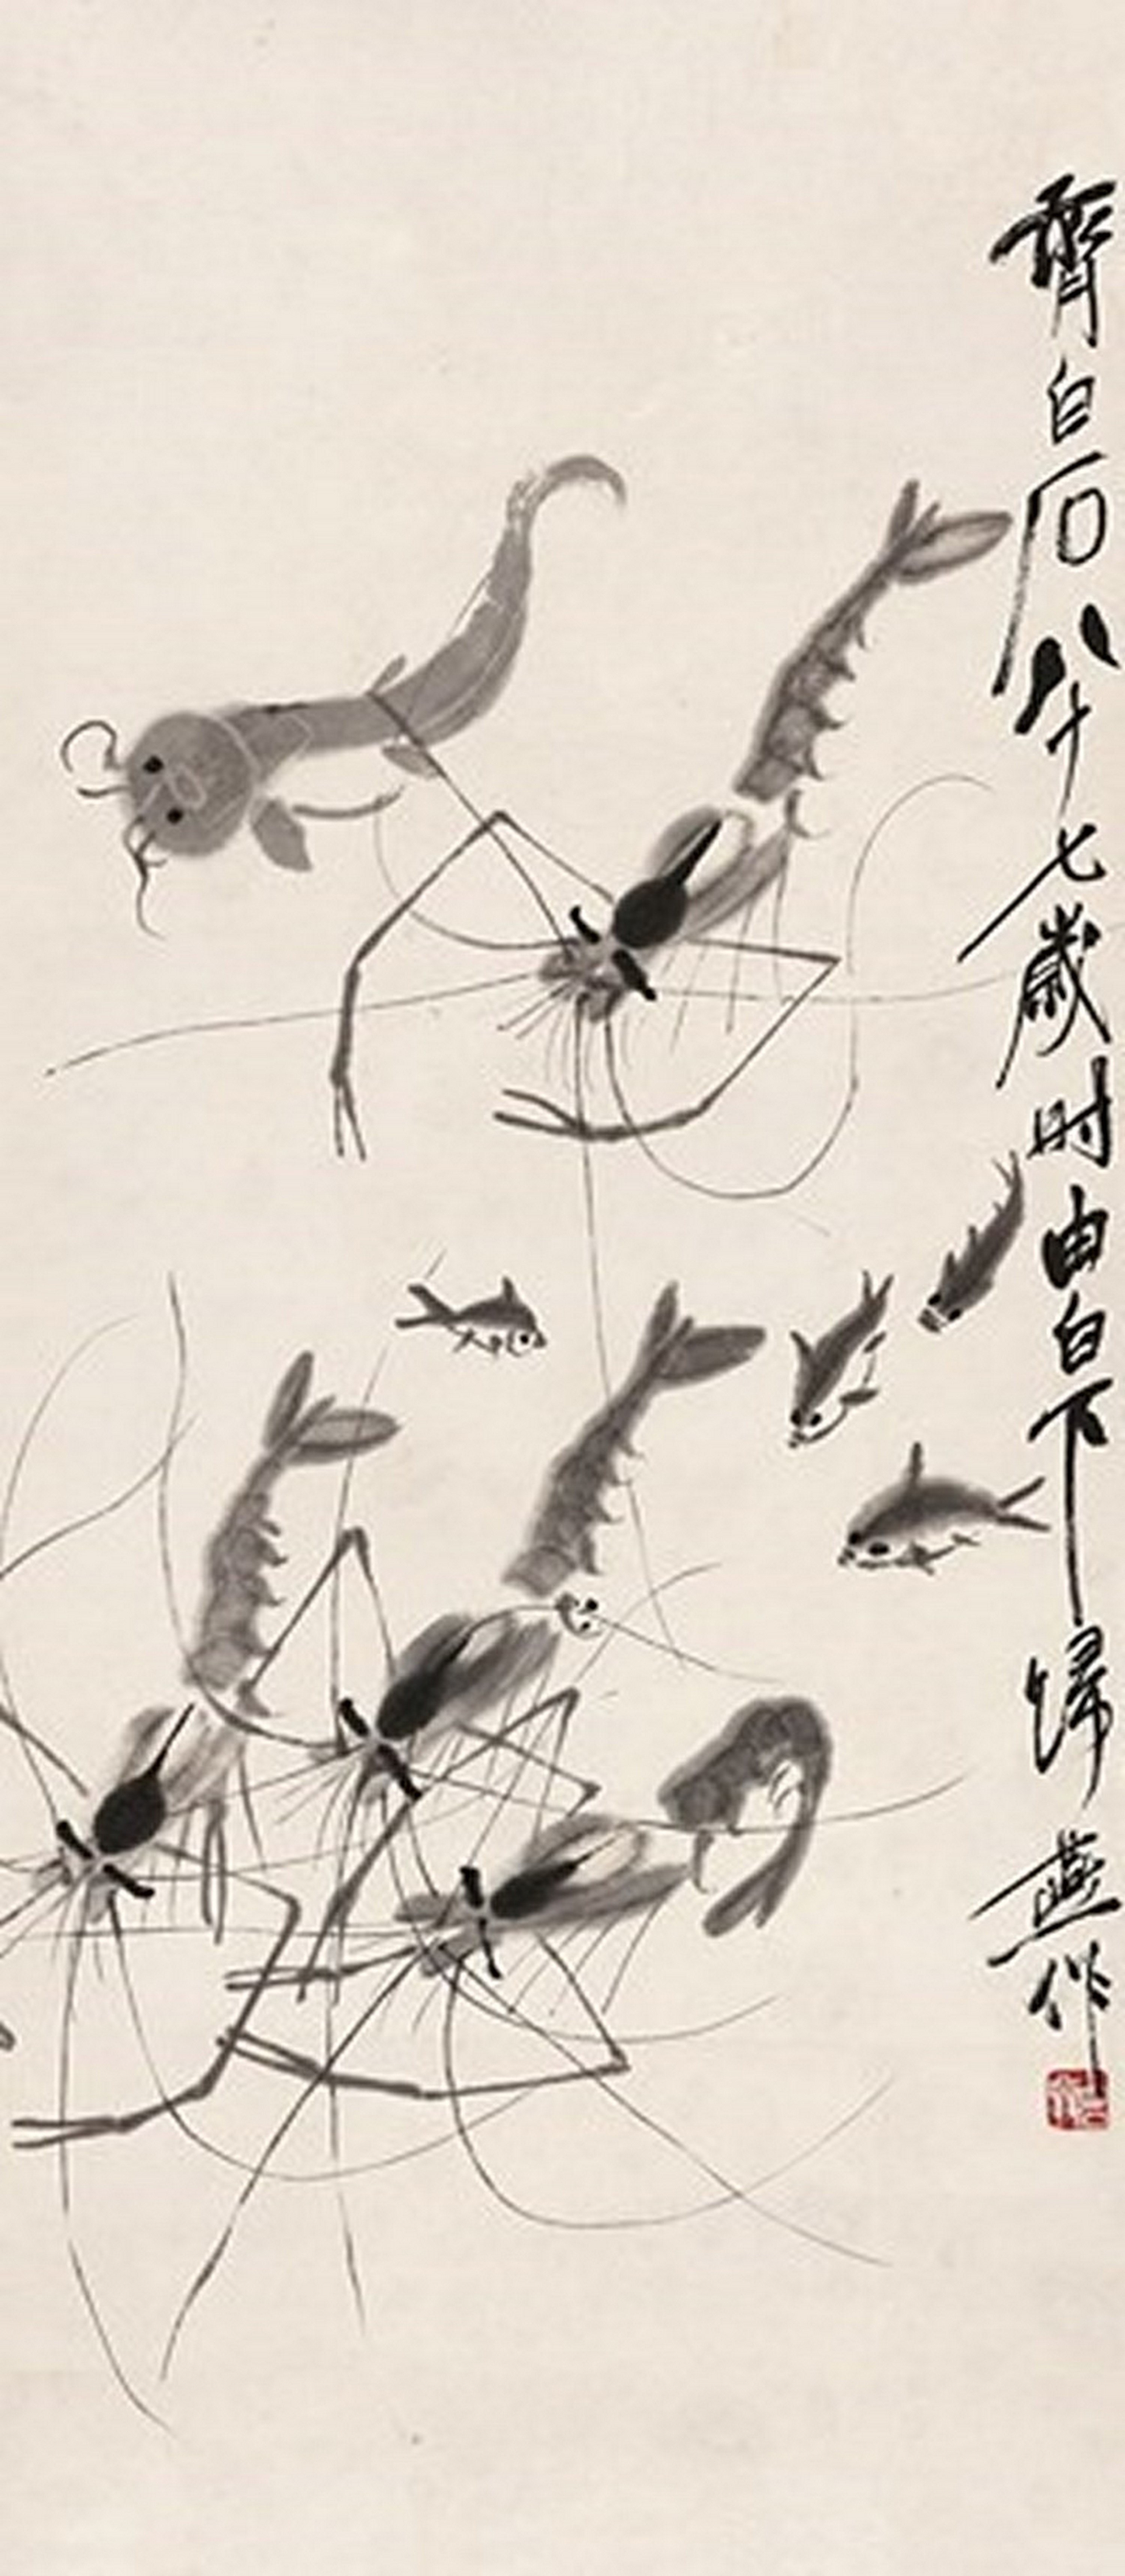 齊白石八十七歲時由白下歸燕作